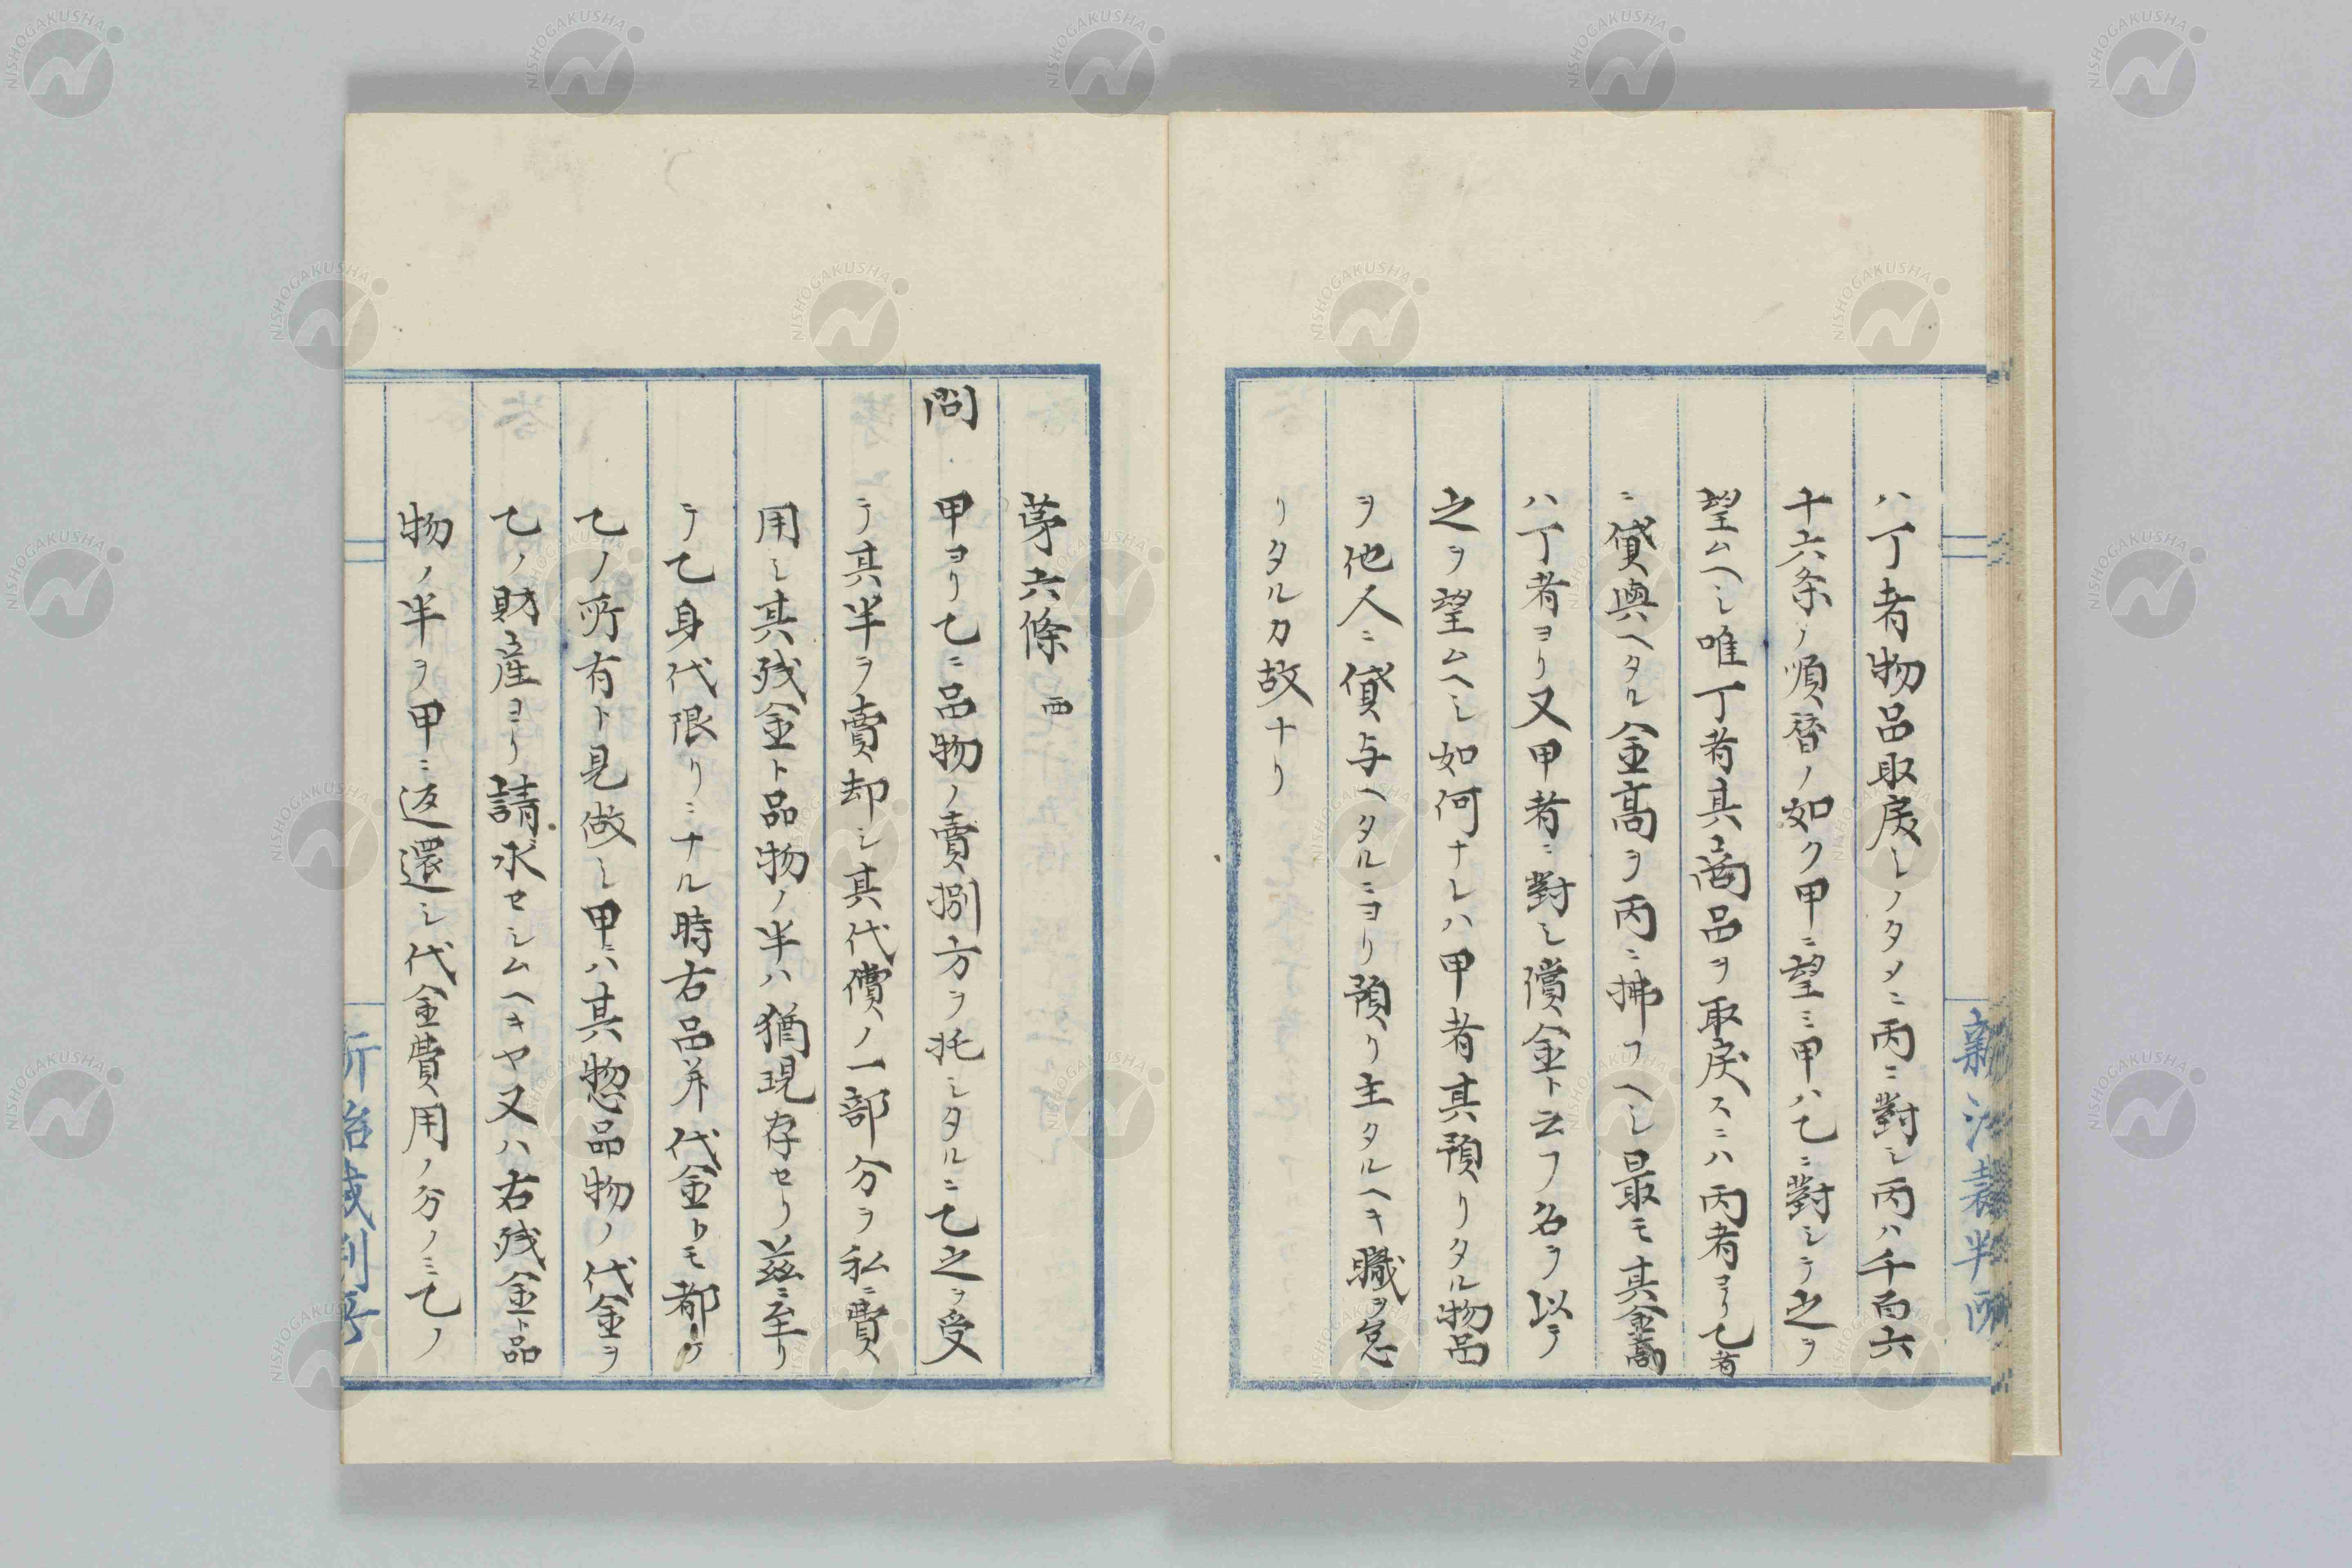 ハ丁者物品取戻シノタメニ丙ニ對シ丙ハ千百六
十六条ノ順替ノ如ク甲ニ望ミ甲ハ乙ニ對シテ之ヲ
望ムヘシ唯丁者其商品ヲ取戻スニハ丙者ヨリ乙者
ニ貸與ヘタル金高ヲ丙ニ拂フヘシ最モ其金高
ハ丁者ヨリ又甲者ニ對シ償金ト云フ名ヲ以テ
之ヲ望ムヘシ如何ナレハ甲者其預リタル物品
ヲ他人ニ貸与ヘタルニヨリ預リ主タルヘキ職ヲ怠
リタルカ故ナリ
第六條 西
問 甲ヨリ乙ニ品物ノ賣捌方ヲ托シタルニ乙之ヲ受
テ其半ヲ賣却シ其代償ノ一部分ヲ私ニ費
用シ其残金ト品物ノ半ハ猶現存セリ茲ニ至リ
テ乙身代限リニナル時右品并代金トモ都テ
乙ノ所有ト見做シ甲ハ其惣品物ノ代金ヲ
乙ノ財産ヨリ請求セシムヘキヤ又ハ右残金ト品
物ノ半ヲ甲ニ返還シ代金費用ノ分ノミ乙ノ
新治裁判所
NISHOGAKUSHA